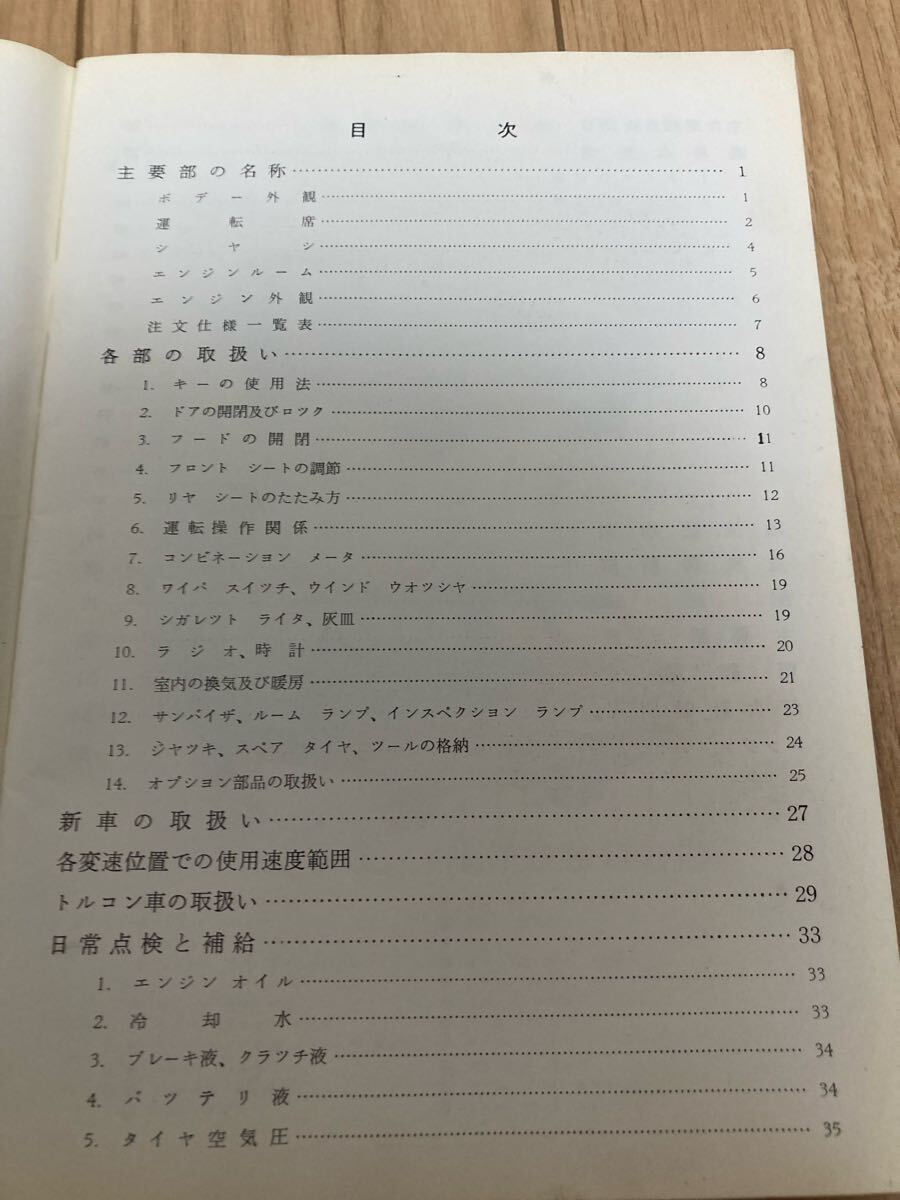 目次
主要部の名称 1
ボデー外観 1
運転席 2
シヤシ 4
エンジンルーム 5
エンジン外観 6
注文仕様一覧表 7
各部の取扱い 8
1. キーの使用法 8
2. ドアの開閉及びロツク 10
3. フードの開閉 11
4. フロント シートの調節 11
5. リヤ シートのたたみ方 12
6. 運転操作関係 13
7. コンビネーション メータ 16
8. ワイパ スイツチ、ウインド ウオツシヤ 19
9. シガレツト ライタ、灰皿 19
10. ラジオ、時計 20
11. 室内の換気及び暖房 21
12. サンバイザ、ルーム ランプ、インスペクション ランプ 23
13. ジヤツキ、スペア タイヤ、ツールの格納 24
14. オプション部品の取扱い 25
新車の取扱い 27
各変速位置での使用速度範囲 28
トルコン車の取扱い 29
日常点検と補給 33
1. エンジン オイル 33
2. 冷却水 33
3. ブレーキ液、クラツチ液 34
4. バツテリ液 34
5. タイヤ空気圧 35